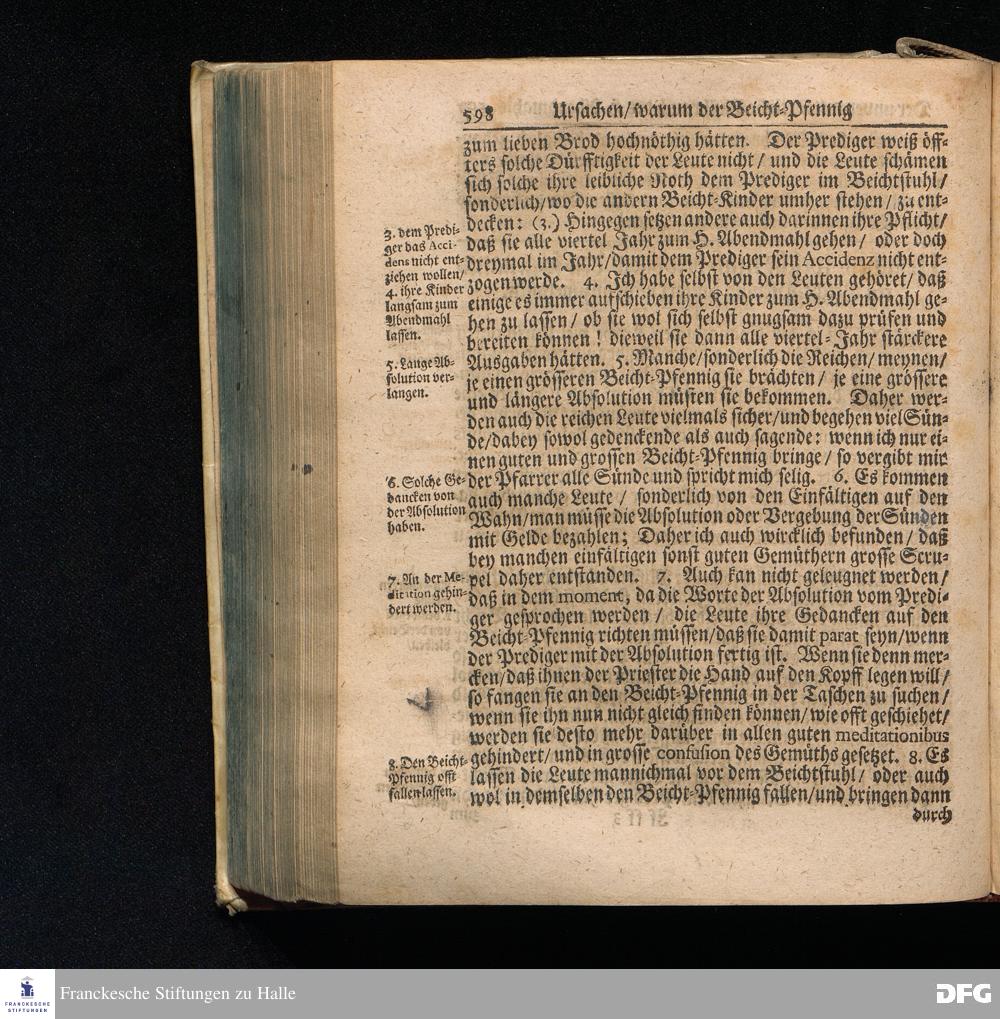 598 Ursachen/warum der Beicht-Pfennig
zum lieben Brod hochnöthig hätten. Der Prediger weiß öff-
ters solche Dürfftigkeit der Leute nicht / und die Leute schämen
sich solche ihre leibliche Noth dem Prediger im Beichtstuhl/
sonderlich/wo die andern Beicht-Kinder umher stehen / zu ent-
decken: (3.) Hingegen setzen andere auch darinnen ihre Pflicht/
daß sie alle viertel Jahr zum H. Abendmahl gehen / oder doch
dreymal im Jahr/damit dem Prediger sein Accidenz nicht ent-
zogen werde. 4. Ich habe selbst von den Leuten gehöret/ daß
einige es immer aufschieben ihre Kinder zum H. Abendmahl ge-
hen zu lassen / ob sie wol sich selbst gnugsam dazu prüfen und
bereiten können ! dieweil sie dann alle viertel-Jahr stärckere
Ausgaben hätten. 5. Manche/sonderlich die Reichen/meynen/
je einen grösseren Beicht-Pfennig sie brächten / je eine grössere
und längere Absolution müsten sie bekommen. Daher wer-
den auch die reichen Leute vielmals sicher/und begehen viel Sün-
de/dabey sowol gedenckende als auch sagende: wenn ich nur ei-
nen guten und grossen Beicht-Pfennig bringe / so vergibt mir
der Pfarrer alle Sünde und spricht mich selig. 6. Es kommen
auch manche Leute / sonderlich von den Einfältigen auf den
Wahn/man müsse die Absolution oder Vergebung der Sünden
mit Gelde bezahlen; Daher ich auch wircklich befunden/ daß
bey manchen einfältigen sonst guten Gemüthern grosse Scru-
pel daher entstanden. 7. Auch kan nicht geleugnet werden/
daß in dem moment, da die Worte der Absolution vom Predi-
ger gesprochen werden / die Leute ihre Gedancken auf den
Beicht-Pfennig richten müssen/daß sie damit parat seyn/wenn
der Prediger mit der Absolution fertig ist. Wenn sie denn mer-
cken/daß ihnen der Priester die Hand auf den Kopff legen will/
so fangen sie an den Beicht-Pfennig in der Taschen zu suchen/
wenn sie ihn nun nicht gleich finden können/wie offt geschiehet/
werden sie desto mehr darüber in allen guten meditationibus
gehindert/ und in grosse confusion des Gemüths gesetzet. 8. Es
lassen die Leute mannichmal vor dem Beichtstuhl / oder auch
wol in demselben den Beicht-Pfennig fallen/und bringen dann
durch
3. dem Predi-
ger das Acci-
dens nicht ent-
ziehen wollen/
4. ihre Kinder
langsam zum
Abendmahl
lassen.
5. Lange Ab-
solution ver-
langen.
6. Solche Ge-
dancken von
der Absolution
haben.
7. An der Me-
ditation gehin-
dert werden.
8. Den Beicht-
Pfennig offt
fallen lassen.
FRANCKESCHE
STIFTUNGEN
Franckesche Stiftungen zu Halle
DFG